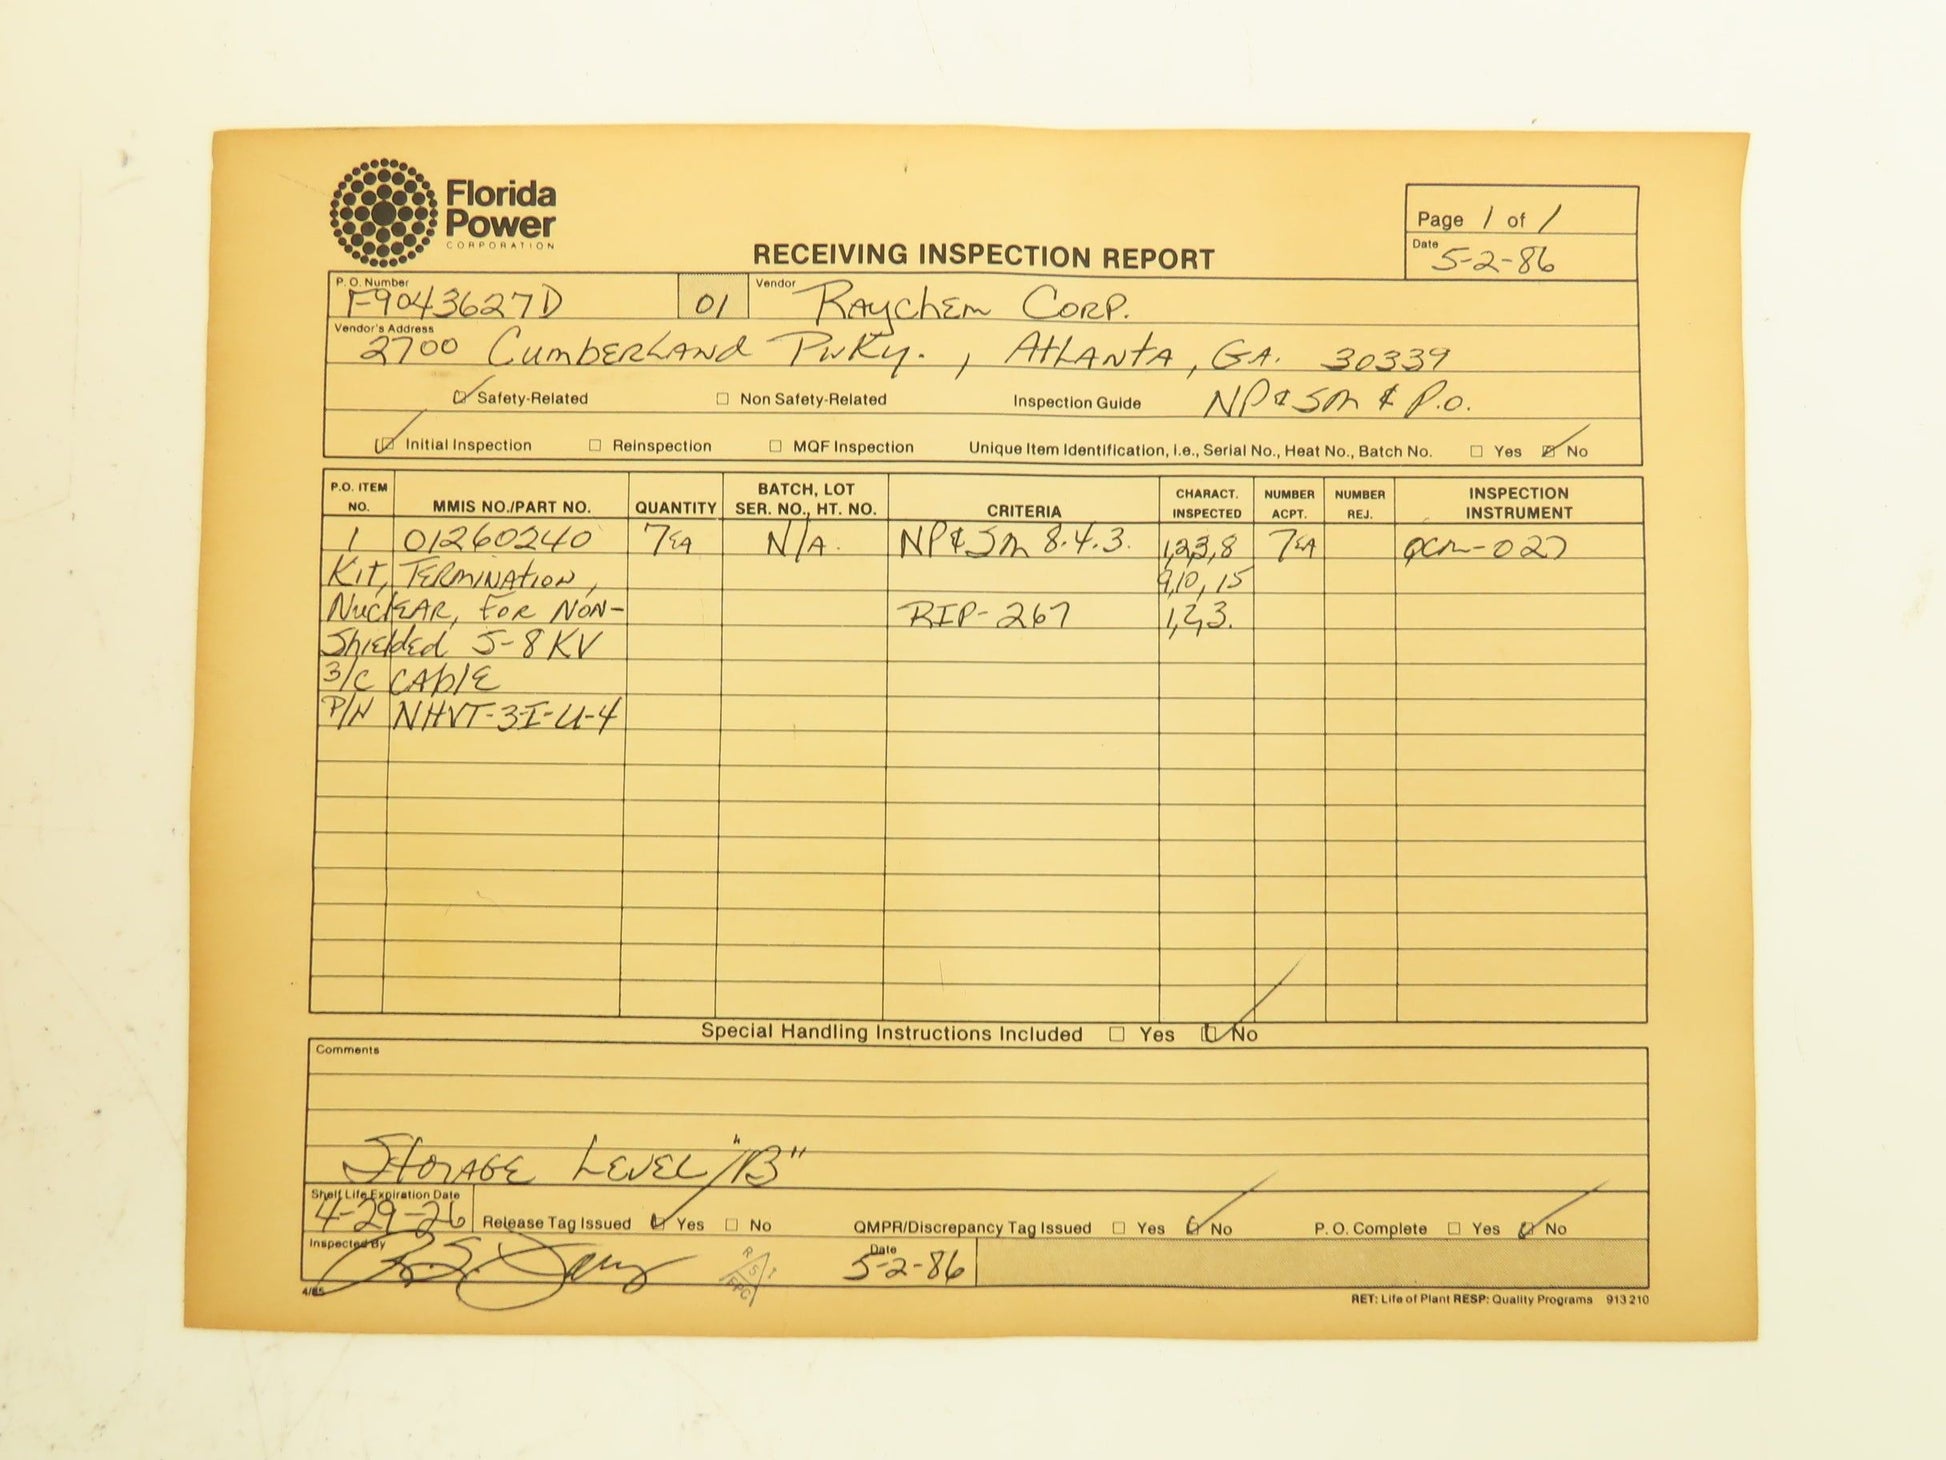 Florida
Power
CORPORATION
RECEIVING INSPECTION REPORT
Page 1 of 1
Date 5-2-86
P.O. Number F9043627D 01 Vendor Raychem Corp.
Vendor's Address 2700 Cumberland Pwky., Atlanta, GA. 30339
☑ Safety-Related ☐ Non Safety-Related Inspection Guide NP&SM & P.O.
☑ Initial Inspection ☐ Reinspection ☐ MQF Inspection Unique Item Identification, i.e., Serial No., Heat No., Batch No. ☐ Yes ☑ No
P.O. ITEM NO. MMIS NO./PART NO. QUANTITY BATCH, LOT SER. NO., HT. NO. CRITERIA CHARACT. INSPECTED NUMBER ACPT. NUMBER REJ. INSPECTION INSTRUMENT
1 01260240 7EA N/A. NP&SM 8.4.3. 1,2,3,8 7EA QCM-027
Kit, Termination, 9,10,15
Nuclear, For Non- RIP-267 1,2,3.
Shielded 5-8 KV
3/C Cable
P/N NHVT-3-I-U-4
Special Handling Instructions Included ☐ Yes ☑ No
Comments
Storage Level "B"
Shelf Life Expiration Date 4-29-26 Release Tag Issued ☑ Yes ☐ No QMPR/Discrepancy Tag Issued ☐ Yes ☑ No P.O. Complete ☐ Yes ☑ No
Inspected By R S I FPC Date 5-2-86
4/85 RET: Life of Plant RESP: Quality Programs 913 210